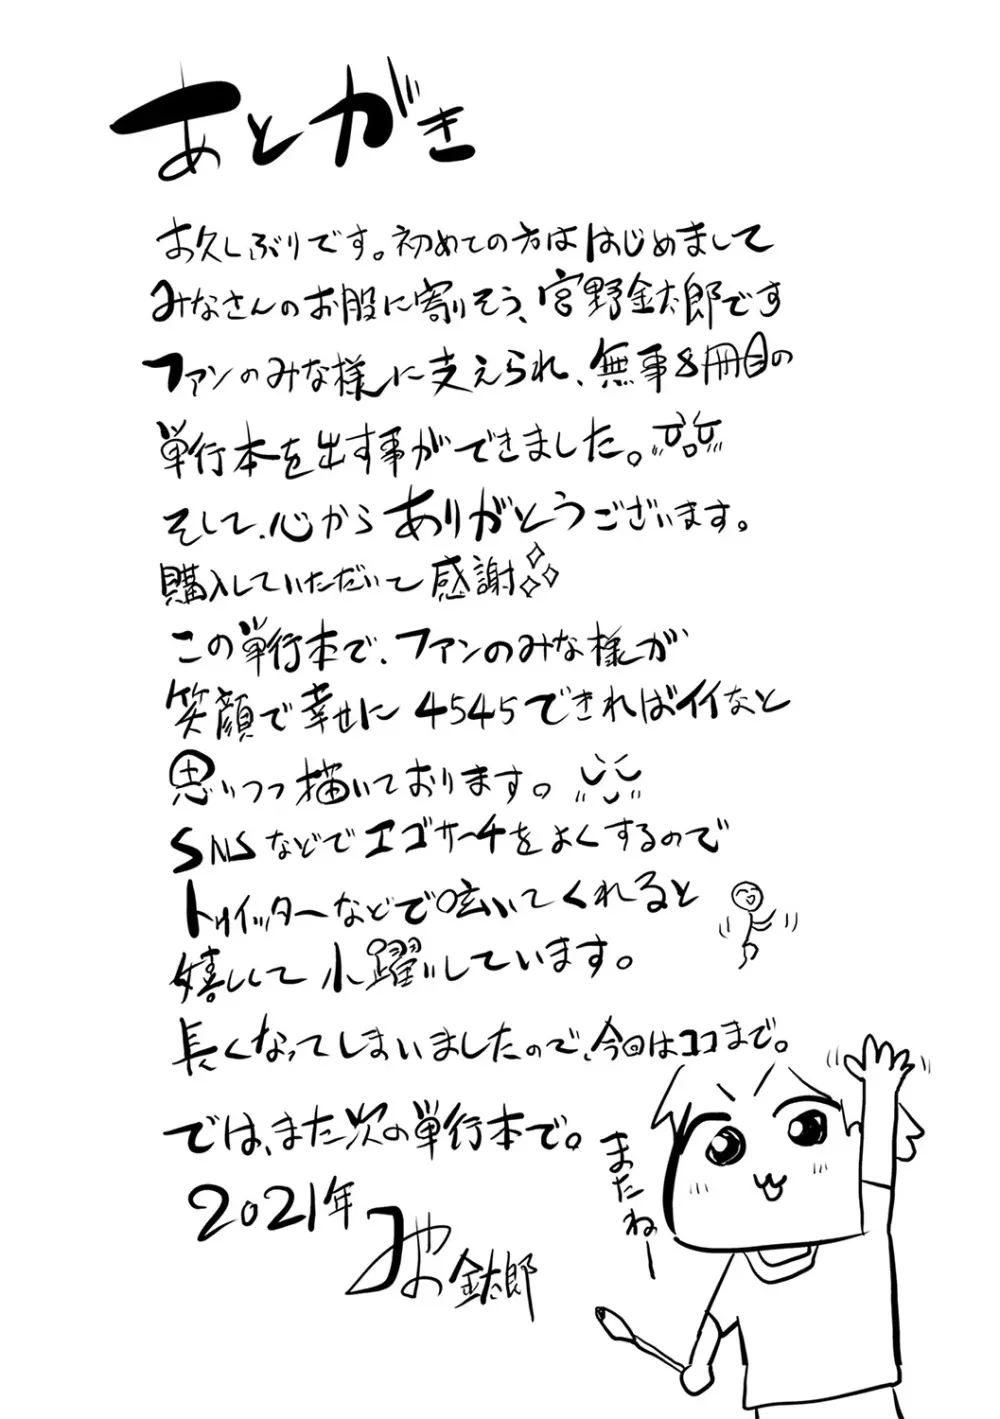 あとがき
お久しぶりです。初めての方ははじめまして
みなさんのお股に割りそう、宮野金太郎です
ファンのみな様に支えられ、無事8冊目の
単行本を出す事ができました。
そして、心からありがとうございます。
購入していただいて感謝
この単行本で、ファンのみな様が
笑顔で幸せに4545できればイイなと
思いつつ描いております。
SNSなどでエゴサーチをよくするので
トゥイッターなどで呟いてくれると
嬉しくて小躍りしています。
長くなってしまいましたので、今回はココまで。
では、また次の単行本で。
2021年
みやの金太郎
またねー